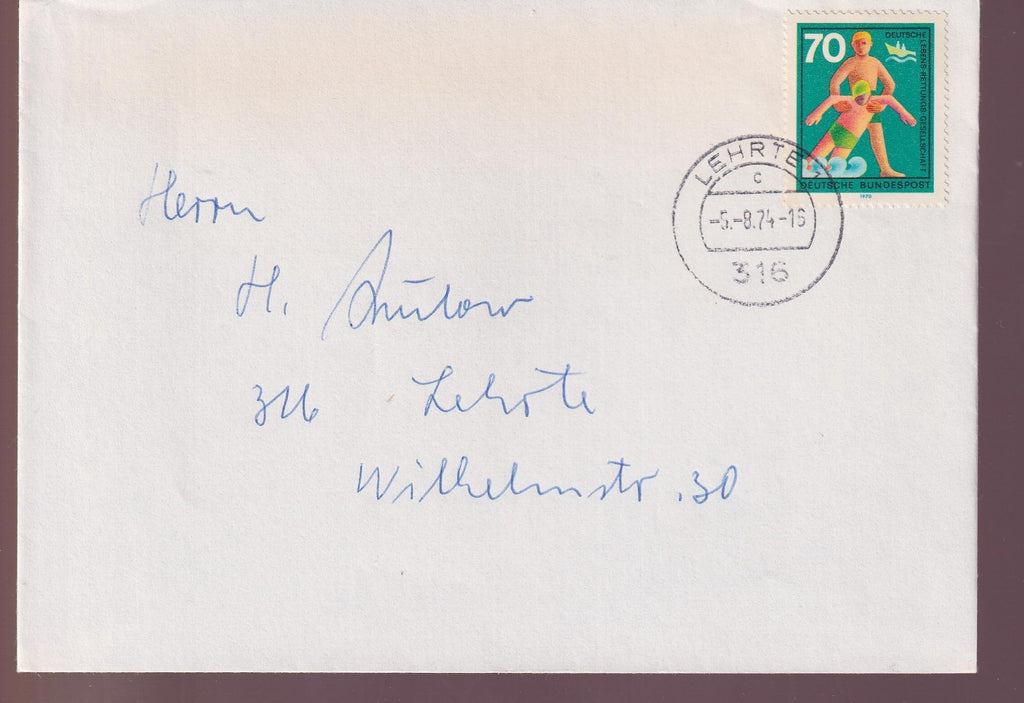 70
DEUTSCHE LEBENS-RETTUNGS-GESELLSCHAFT
DEUTSCHE BUNDESPOST
1970
LEHRTE 1
c
-5.-8.74-16
316
Herrn
H.
316 Lehrte
Wilhelmstr. 30